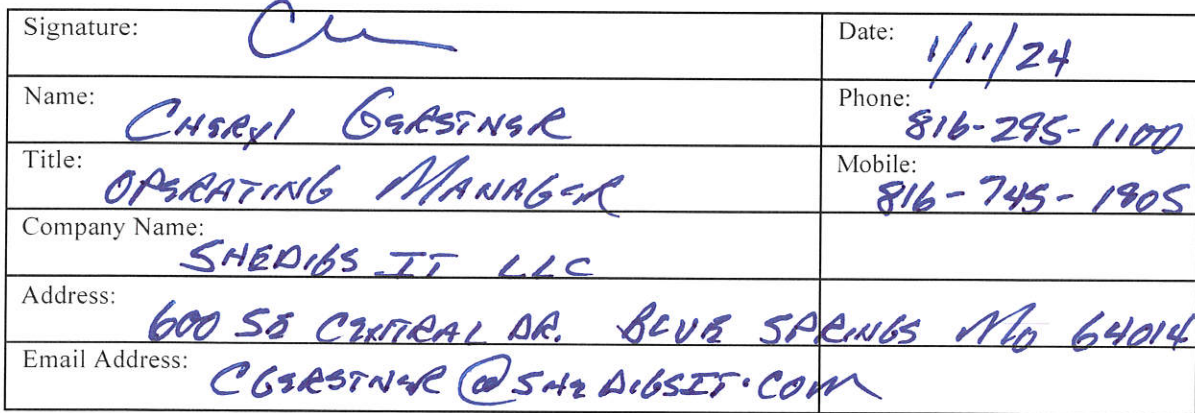 Signature: Date: 1/11/24
Name: CHERYl GERSTNER Phone: 816-295-1100
Title: OPERATING MANAGER Mobile: 816-745-1905
Company Name: SHEDIGS IT LLC
Address: 600 SE CENTRAL DR. BLUE SPRINGS MO 64014
Email Address: CGERSTNER@SHEDIGSIT.COM